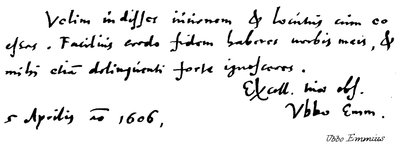 Velim indisses insionem & locutus cum eo
esses. Facilius credo fidem haberes verbis meis, &
mihi etiã delinquenti forte ignosceres.
Excell. tuae obs.
Ubbo Emm.
5 Aprilis aõ 1606,
Ubbo Emmius